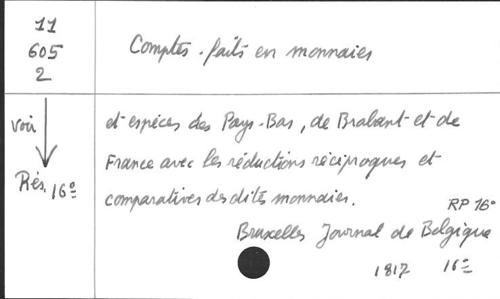 11
605
2
Comptes-faits en monnaies
voir
Rés. 16º
et espèces des Pays-Bas, de Brabant et de
France avec les réductions réciproques et
comparatives desdites monnaies.
RP 16º
Bruxelles Journal de Belgique
1817 16º